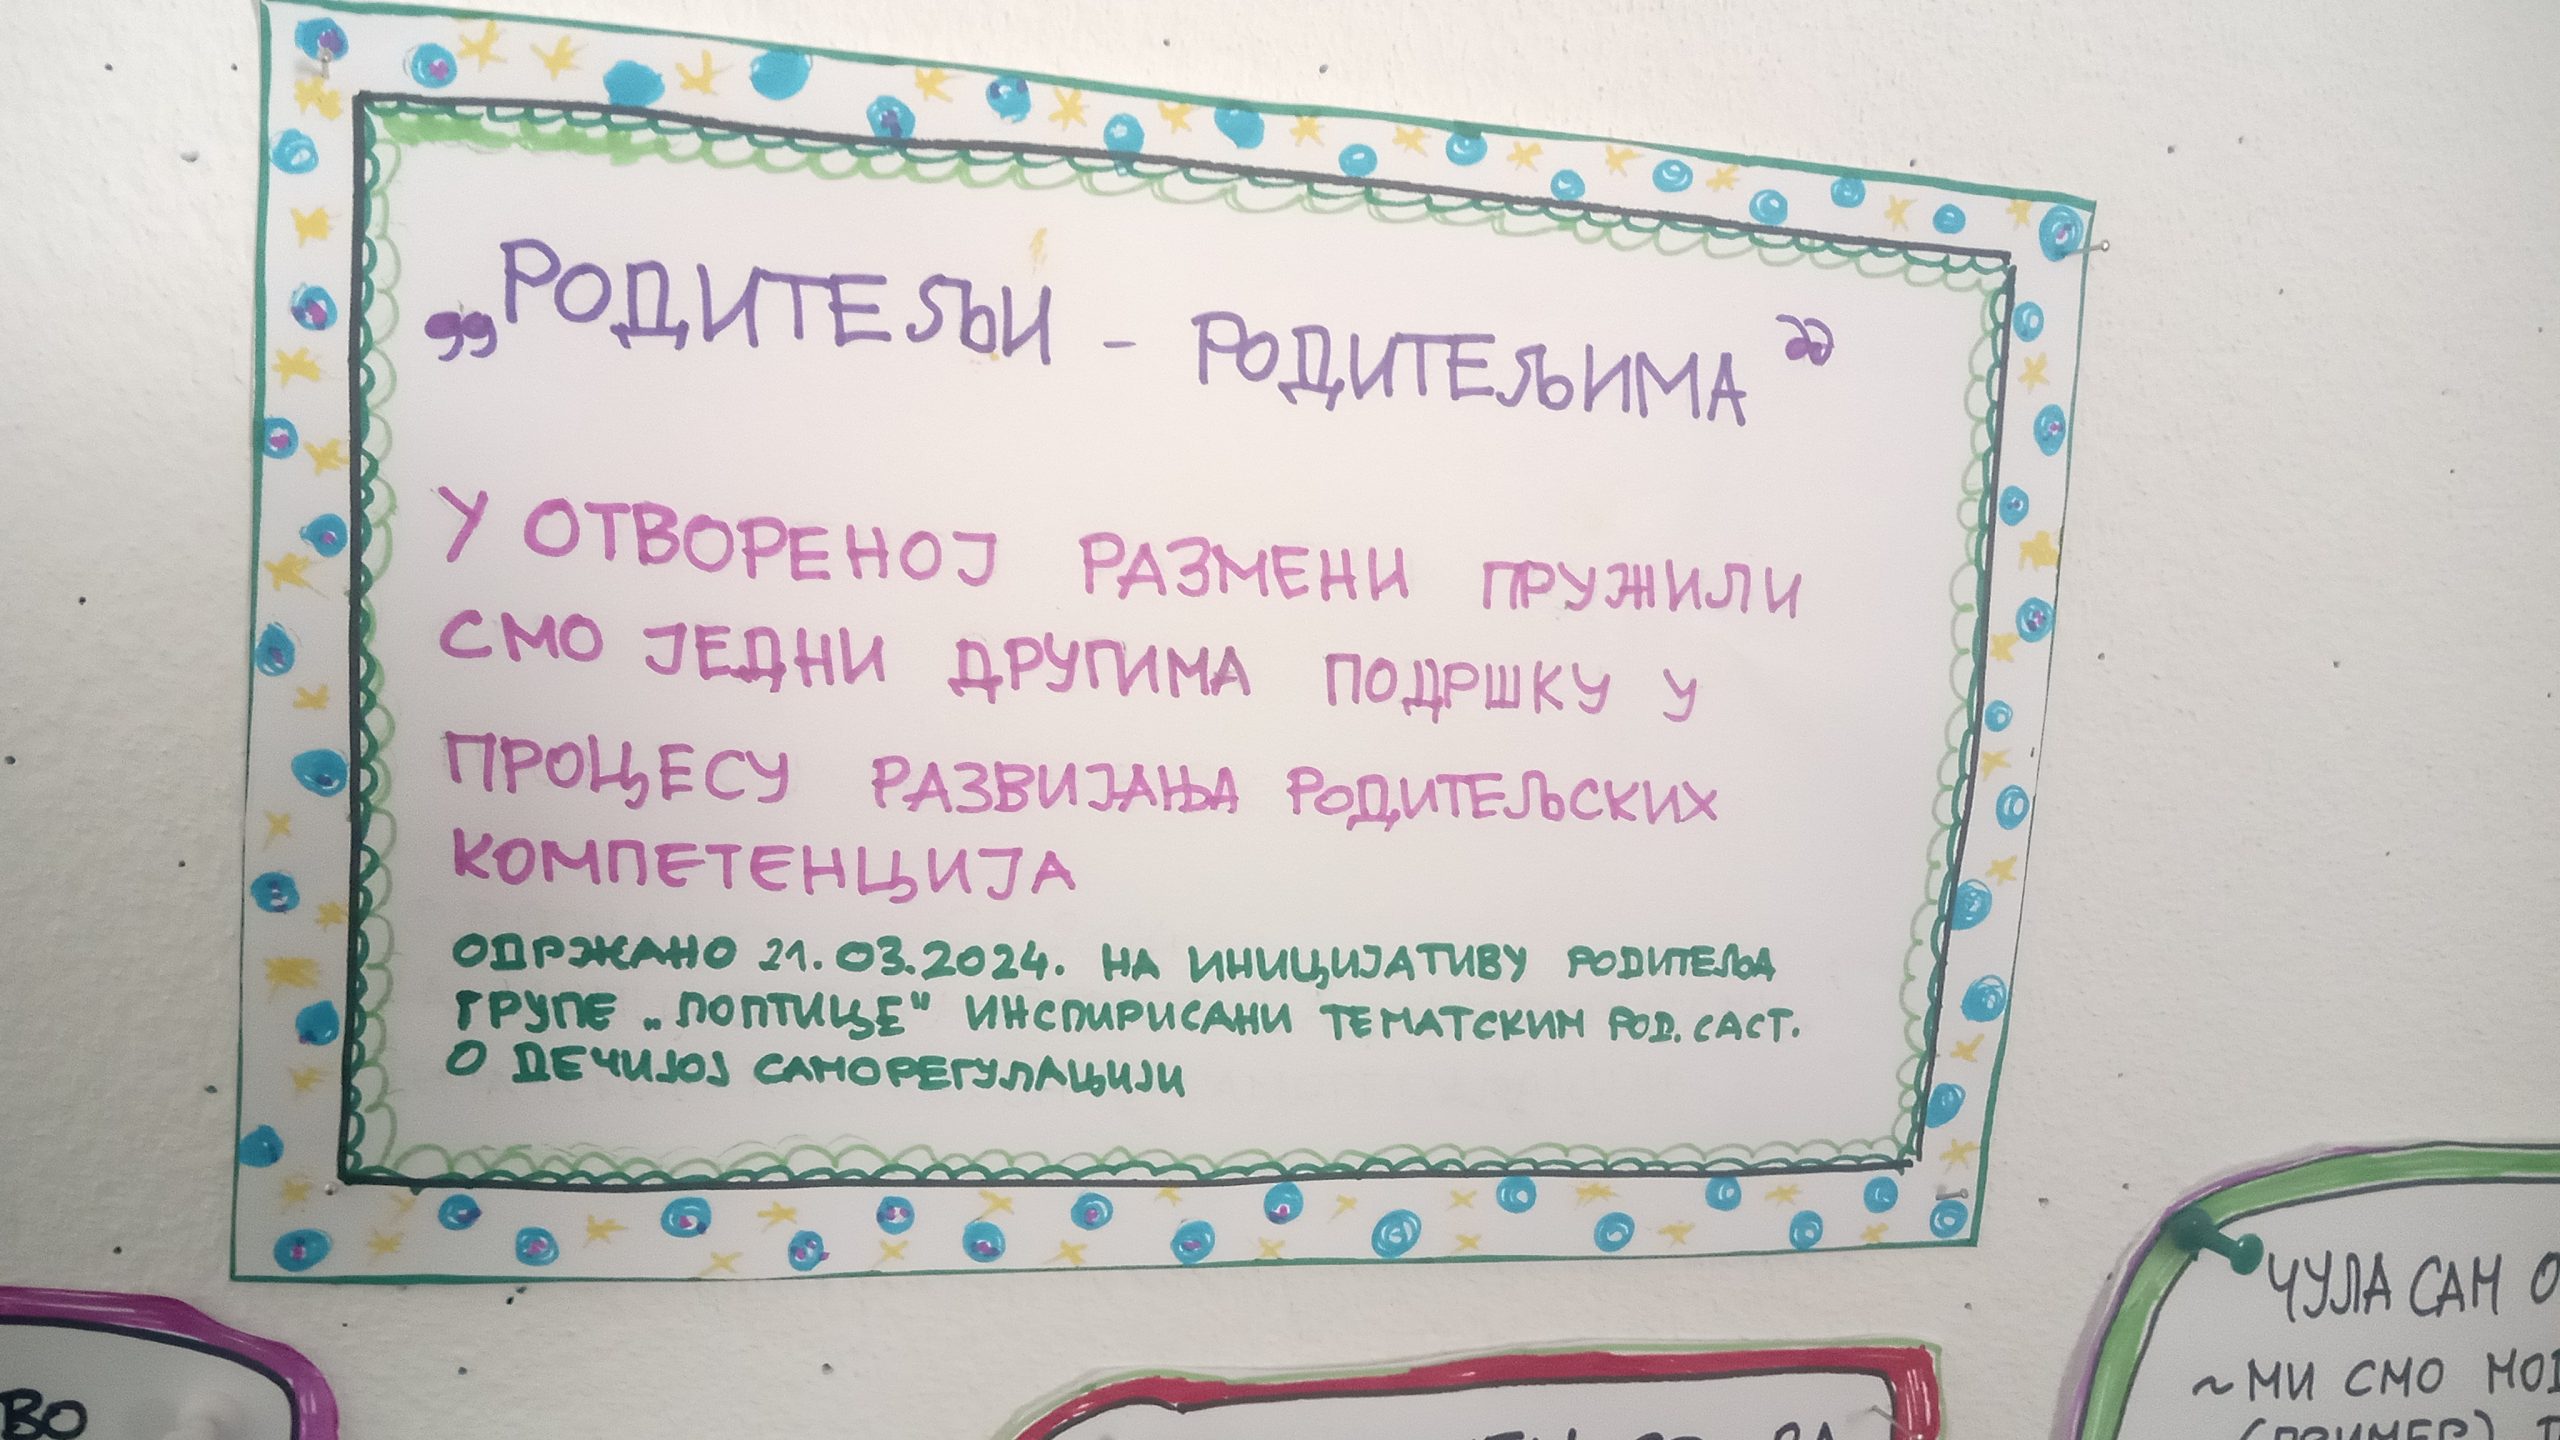 „РОДИТЕЉИ - РОДИТЕЉИМА"
У ОТВОРЕНОЈ РАЗМЕНИ ПРУЖИЛИ
СМО ЈЕДНИ ДРУГИМА ПОДРШКУ У
ПРОЦЕСУ РАЗВИЈАЊА РОДИТЕЉСКИХ
КОМПЕТЕНЦИЈА
ОДРЖАНО 21.03.2024. НА ИНИЦИЈАТИВУ РОДИТЕЉА
ГРУПЕ „ЛОПТИЦЕ" ИНСПИРИСАНИ ТЕМАТСКИМ РОД. САСТ.
О ДЕЧИЈОЈ САМОРЕГУЛАЦИЈИ
ЧУЛА САМ
~ МИ СМО
(ПРИМЕР)
ВО